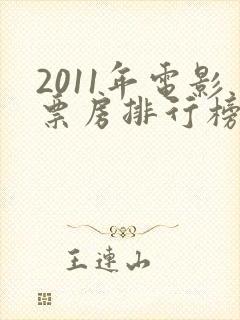 2011年電影
票房排行榜
王連山